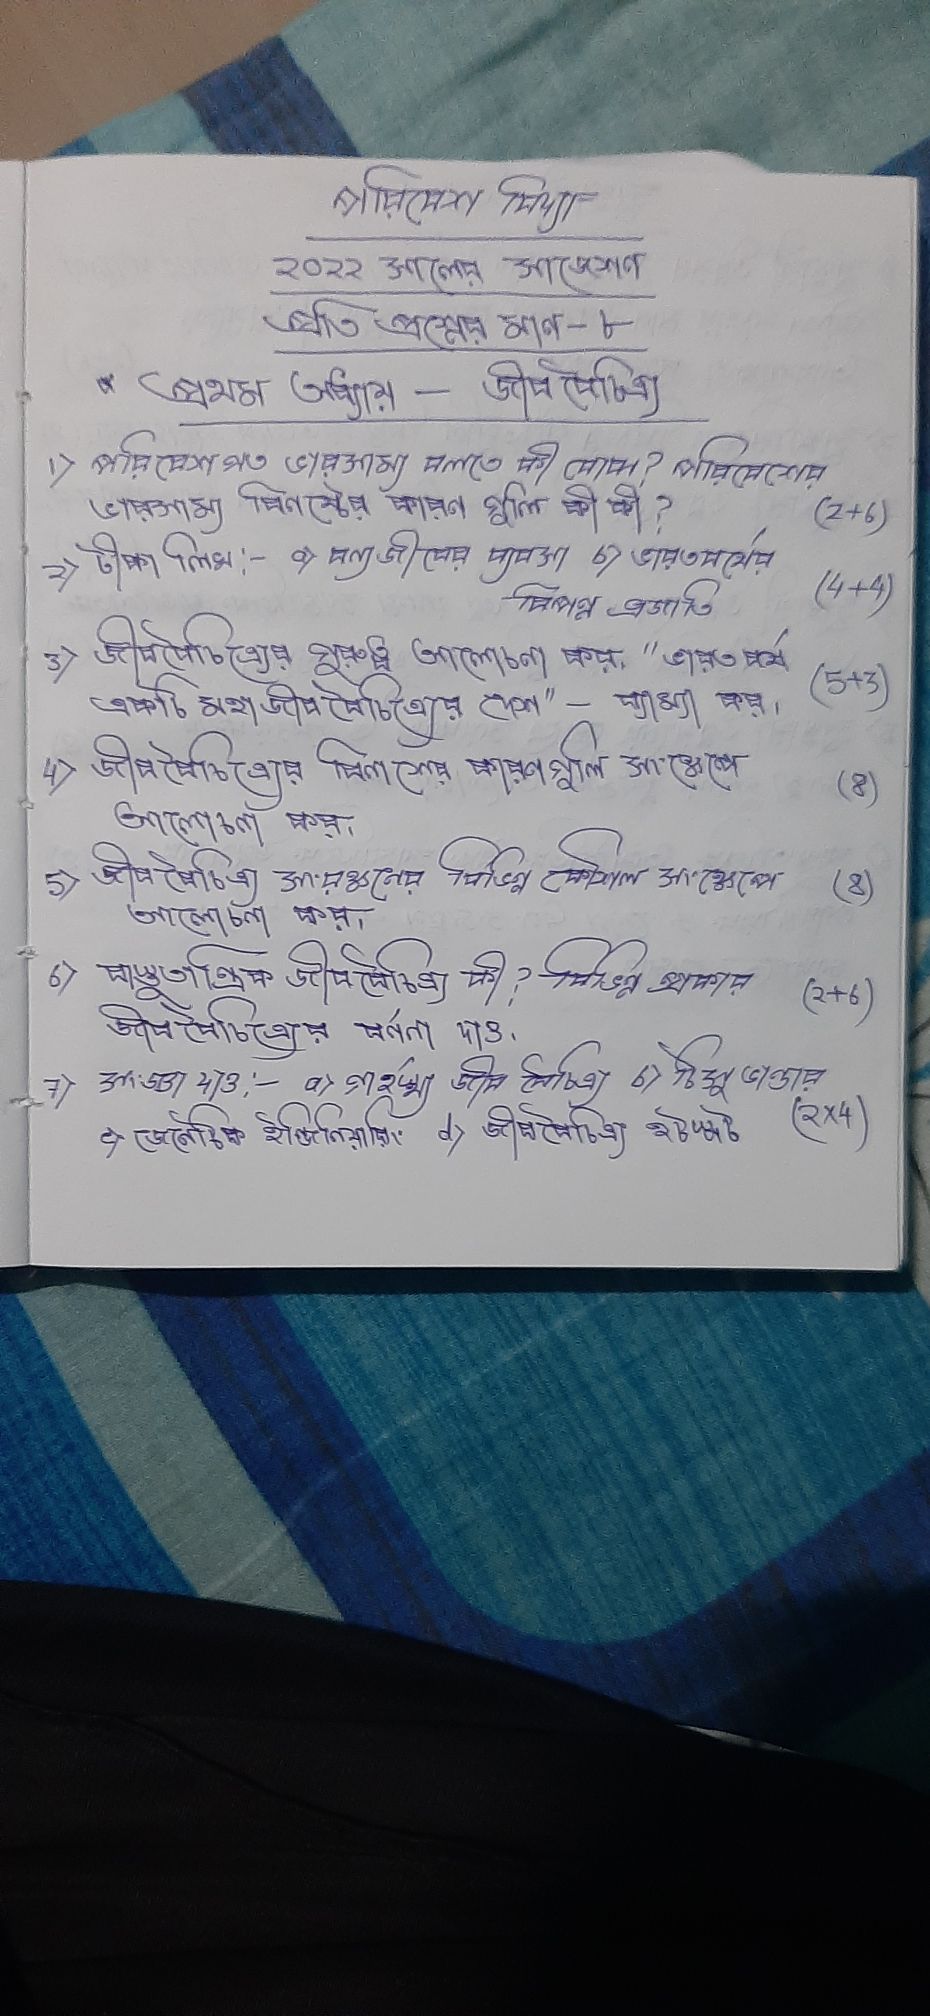 পরিবেশ বিদ্যা
২০২২ সালের সাজেশন
প্রতি প্রশ্নের মান - ৮
* প্রথম অধ্যায় — জীববৈচিত্র্য
1) পরিবেশগত ভারসাম্য বলতে কী বোঝ? পরিবেশের
ভারসাম্য বিনষ্টের কারণ গুলি কী কী? (2+6)
2) টীকা লিখ:- a) বন্যজীবের ব্যবসা b) ভারতবর্ষের
বিপন্ন প্রজাতি (4+4)
3) জীববৈচিত্র্যের গুরুত্ব আলোচনা কর। "ভারতবর্ষ
একটি মহাজীববৈচিত্র্যের দেশ" – ব্যাখ্যা কর। (5+3)
4) জীববৈচিত্র্যের বিনাশের কারণগুলি সংক্ষেপে
আলোচনা কর। (8)
5) জীববৈচিত্র্য সংরক্ষনের বিভিন্ন কৌশল সংক্ষেপে
আলোচনা কর। (8)
6) বাস্তুতান্ত্রিক জীববৈচিত্র্য কী? বিভিন্ন প্রকার
জীববৈচিত্র্যের বর্ননা দাও। (2+6)
7) সংজ্ঞা দাও:- a) গার্হস্থ্য জীব বৈচিত্র্য b) টিস্যু ভান্ডার
c) জেনেটিক ইঞ্জিনিয়ারিং d) জীববৈচিত্র্য হটস্পট (2x4)